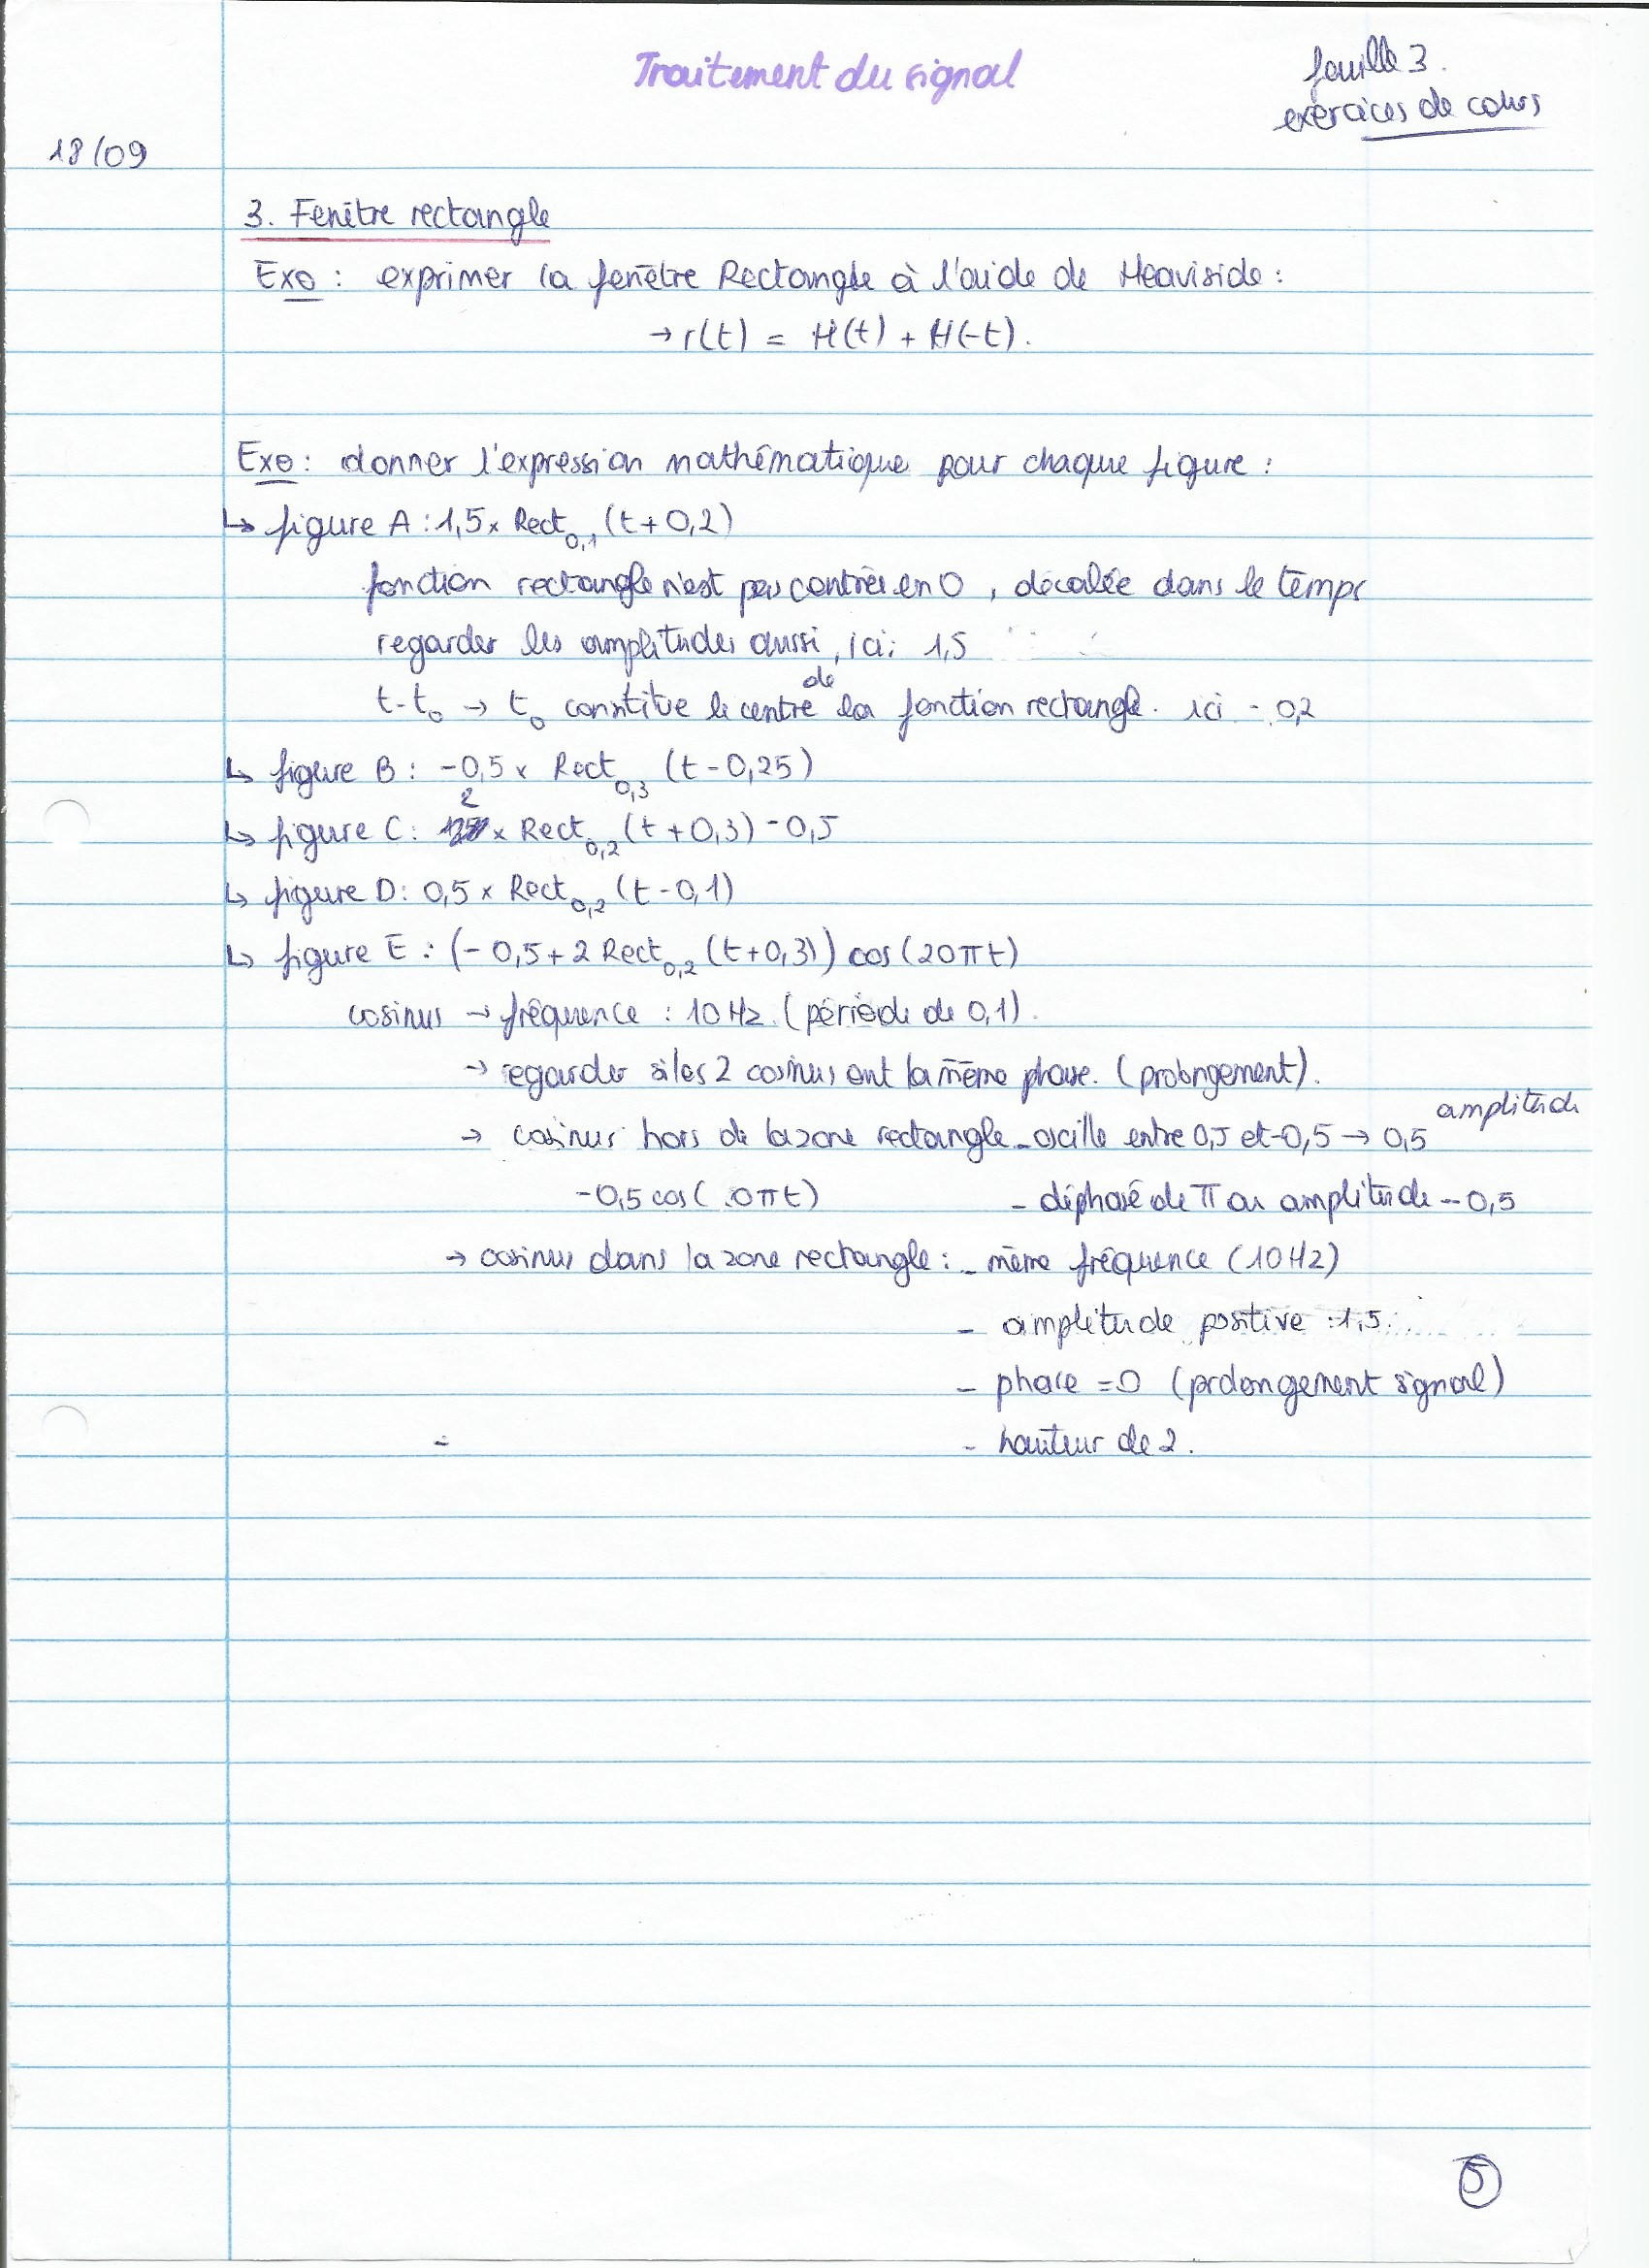 Traitement du signal
feuille 3.
exercices de cours
18/09
3. Fenêtre rectangle
Exo : exprimer la fenêtre Rectangle à l'aide de Heaviside :
→ r(t) = H(t) + H(-t).
Exo : donner l'expression mathématique pour chaque figure :
↳ figure A : 1,5 × Rect₀,₁ (t + 0,2)
fonction rectangle n'est pas centrée en 0, décalée dans le temps
regarder les amplitudes aussi, ici : 1,5
t - t₀ → t₀ constitue le centre de la fonction rectangle. ici - 0,2
↳ figure B : -0,5 × Rect₀,₃ (t - 0,25)
↳ figure C : 2 × Rect₀,₂ (t + 0,3) - 0,5
↳ figure D : 0,5 × Rect₀,₂ (t - 0,1)
↳ figure E : (- 0,5 + 2 Rect₀,₂ (t + 0,3)) cos (20πt)
cosinus → fréquence : 10 Hz. (période de 0,1).
→ regarder si les 2 cosinus ont la même phase. (prolongement).
→ cosinus hors de la zone rectangle - oscille entre 0,5 et -0,5 → 0,5 amplitude
-0,5 cos( 0πt) - déphasé de π ou amplitude - 0,5
→ cosinus dans la zone rectangle : - même fréquence (10 Hz)
- amplitude positive : 1,5
- phase = 0 (prolongement signal)
- - hauteur de 2.
5